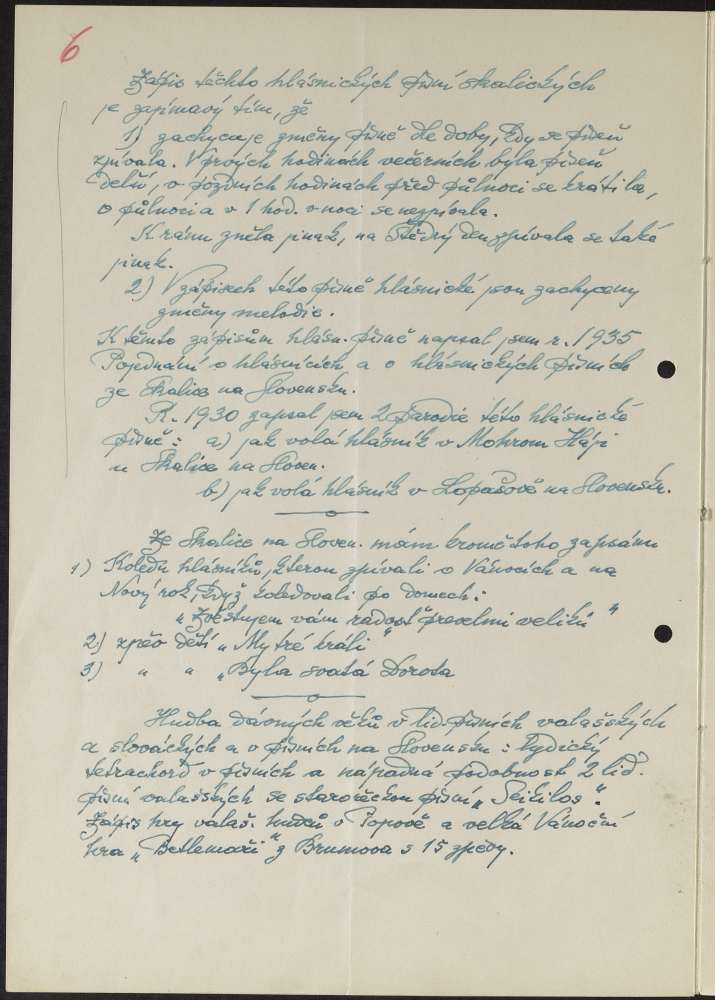 6
Zápis těchto hlásnických písní skalických
je zajímavý tím, že
1) zachycuje změny písně dle doby, kdy se píseň
zpívala. V prvých hodinách večerních byla píseň
delší, v pozdních hodinách před půlnocí se krátila,
o půlnoci a v 1 hod. v noci se nezpívala.
K ránu zněla jinak, na Štědrý den zpívala se také
jinak.
2) V zápisech této písně hlásnické jsou zachyceny
změny melodie.
K těmto zápisům hlásn. písně napsal jsem r. 1935
Pojednání o hlásnících a o hlásnických písních
ze Skalice na Slovensku.
R. 1930 zapsal jsem 2 parodie této hlásnické
písně: a) jak volá hlásník v Mokrom Háji
u Skalice na Sloven.
b) jak volá hlásník v Lopašově na Slovensku.
Ze Skalice na Sloven. mám kromě toho zapsánu
1) Koledu hlásníků, kterou zpívali o Vánocích a na
Nový rok, když koledovali po domech:
„Zvěstujem vám radosť prevelmi velikú"
2) zpěv dětí „My tré králi"
3) " " „Byla svatá Dorota
Hudba dávných věků v lid. písních valašských
a slováckých a v písních na Slovensku: lydický
tetrachord v písních a nápadná podobnost 2 lid.
písní valašských se starořeckou písní „Seikilos".
Zápis hry valaš. hudců v Popově a velká Vánoční
hra „Betlemáři" z Brumova s 15 zpěvy.